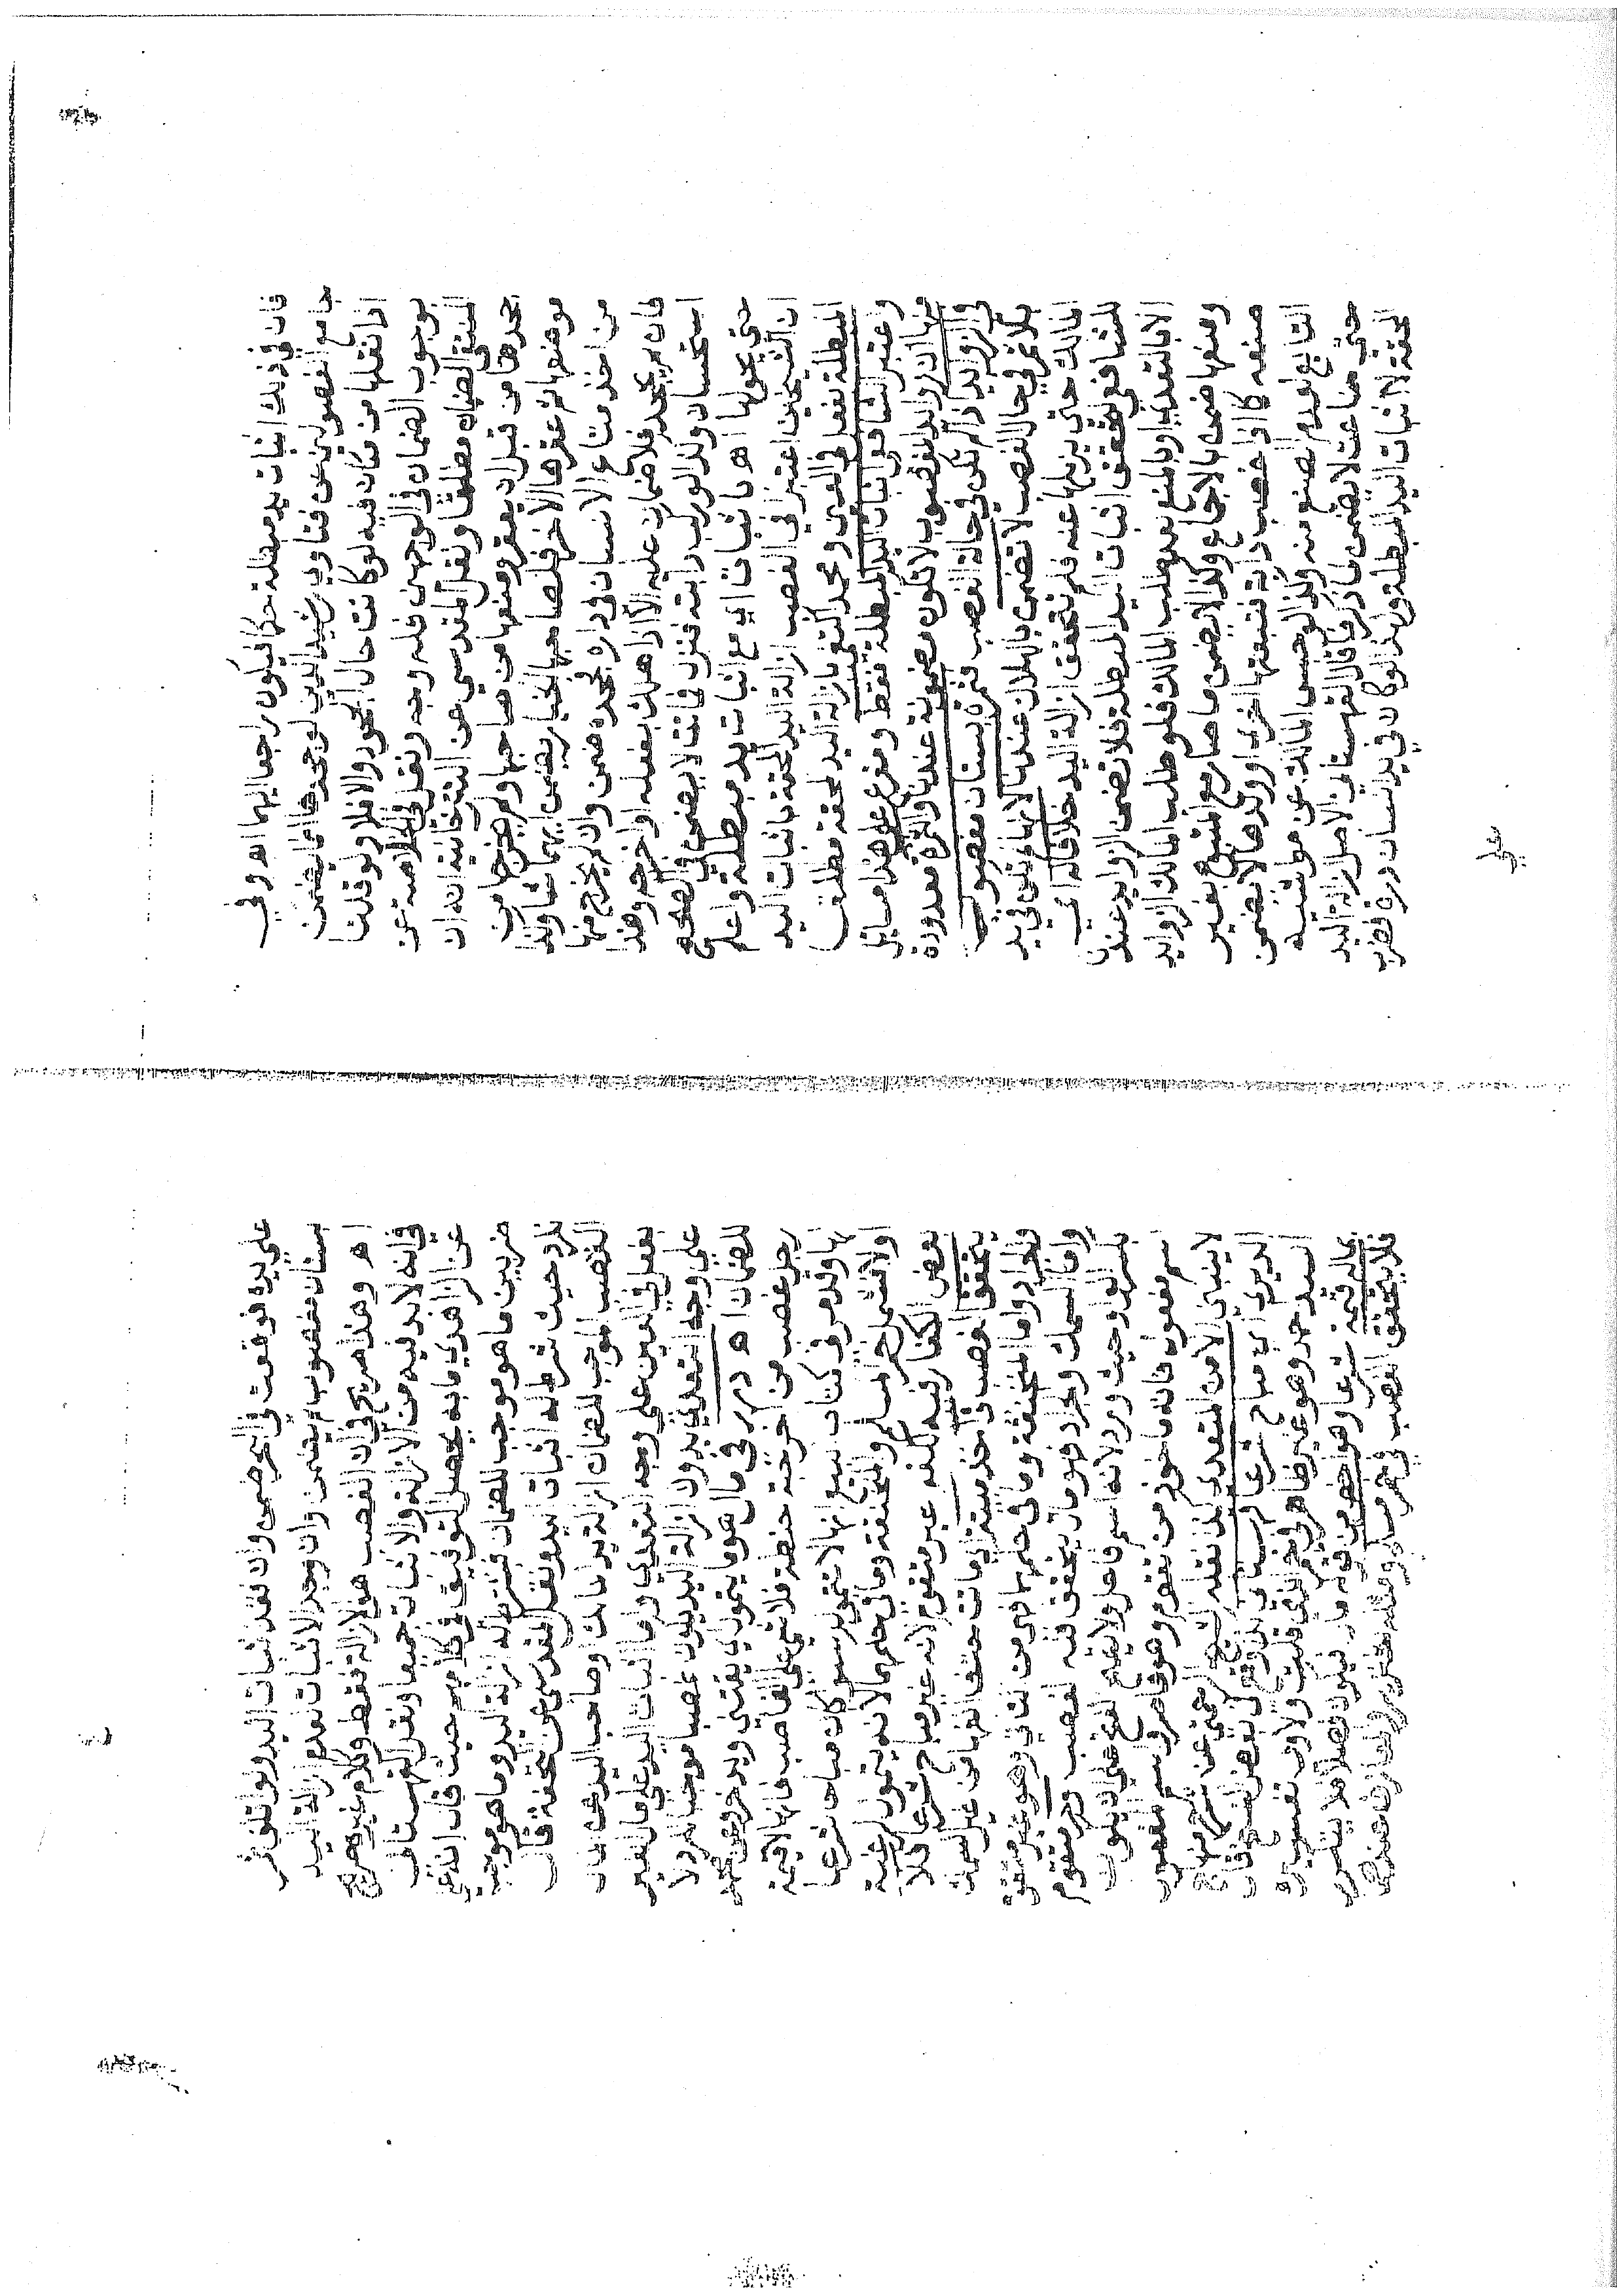 فان في ذلك اثبات يد مبطلة حكما فيكون راجعا اليهما اه وفي
جامع الفصولين عن فتاوي رشيد الدين لو جحدها انما يضمن
اذا نقلها من مكان فيه لو كانت حال الجحود والا فلا ولو قلنا
بوجوب الضمان في الوجهين فله وجه ونقل في الخلاصة عن
المنتقى الضمان مطلقا ونقل المقدسي عن التتارخانية انه ان
جحدها من قبل ان يعقر ومنعها من صاحبها ولم يخرجها من
موضعها ثم عقرها الاخر فلصاحبها الخيار يضمن ايهما شا وكذا
من اخذ متاع الانسان في داره فجحده ضمن وان لم يخرج منها
فان لم يجحد فلا ضمان عليه الا اذا هلك بفعله او اخرجه وهذا
استحسان وكذا لو ركب دابته فنزل فماتت لا يضمن في الصحيح
حتى يحولها اه باثبات اي مع اثبات يد مبطلة واعلم
ان الشيخين اعتبرا في الغصب ازالة اليد المحقة باثبات اليد
المبطلة بفعل في العين ومحمد اكتفى بازالة اليد المحقة مطلقا
واعتبر الشافعي اثبات اليد المبطلة فقط ومفرع على هذا مسائل
منها ان زوايد المغصوب لا تكون مضمونة عندنا والثمرة معدودة
في الزوايد اذا لم تكن في حالة الغصب فثمرة بستان مغصوب
بلا ثمر في حال الغصب لا تضمن بالهلاك عندنا لانها لم تكن في يد
المالك حتى يزيلها عنه فلم تتحقق ازالة اليد خلافا له اي
للشافعي لتحقق اثبات اليد المبطلة فلا تضمن الزوايد عندنا
الا بالتعدي او بالمنع بعد طلب المالك فلو طلب المالك الزوايد
ومنعها ضمن بالاجماع وكذا لا يضمن ما صار مع المتبوع بغير
صنعه كما اذا غصب دابة فتبعتها اخرى او ولدها لا يضمن
التابع لعدم الصنع منه وكذا لو حبس المالك عن مواشيه
حتى ضاعت لا يضمن لما ذكر قال القهستاني الاصل ازالة اليد
المحقة لا اثبات اليد المبطلة ولهذا لو كان في يد انسان درة فضرب
علي
علي يده فوقعت في البحر ضمن وان فقد اثبات اليد ولو اتلف ثمر
بستان مغصوب لم يضمن وان وجد الاثبات لعدم ازالة اليد
اه وهذا صريح في ان الغصب هو الازالة فقط وكلام غيره صريح
في انه لا بد فيه من الازالة والاثبات جميعا ونقل القهستاني
عن الزاهدي ما به يحصل التوفيق في كلامهم حيث قال انه على
ضربين ما هو موجب للضمان فيشترط له ازالة اليد وما هو موجب
للرد حيث شرط له اثبات اليد ونقل المقدسي عن التحفة قال
الغصب الموجب للضمان ازالة يد المالك او صاحب اليد عن المال
بفعل في العين على وجه التعدي واما اثبات اليد على مال الغير
على وجه التعدي بدون ازالة اليد يكون غصبا موجبا للرد لا
للضمان اه درر في مال هو ما يتمول اي يقتنى ويدخر
رجل غصب من اخر حبة حنطة فلا شي على الغاصب فانها لا قيمة
لها وقد مر في كتاب البيع انها لا تتمول سوا كان مباحا شرعا
اولا فشمل خمر المسلم والمنخنقة وما في حكمها لانه يتمول لرغبة
بعض الكفار فيه لكنه غير متقوم لانه غير مباح شرعا فلا
يتحقق الغصب في اخذ ميتة اي ماتت حتف انفها من غير السمك
والجراد واما المنخنقة وما في حكمها فهي من الثاني وهو غير متقوم
واما السمك والجراد فهو مال يتحقق فيه الغصب وحر متقوم
بكسر الواو حيث ورد لانه اسم فاعل ولا يصح الفتح على ان يكون
اسم مفعول فانه ماخوذ من تقوم وهو قاصر واسم المفعول
لا يبنى الا من المتعدي كذا نقله الشيخ الحمتي عن شرح منهاج
الدميري اي مباح شرعا
السيد حمد وهو غير ظاهر
بماله قيمة شرعا وهو اخص من قوله مال
فلا يتحقق الغصب في خمر مسلم